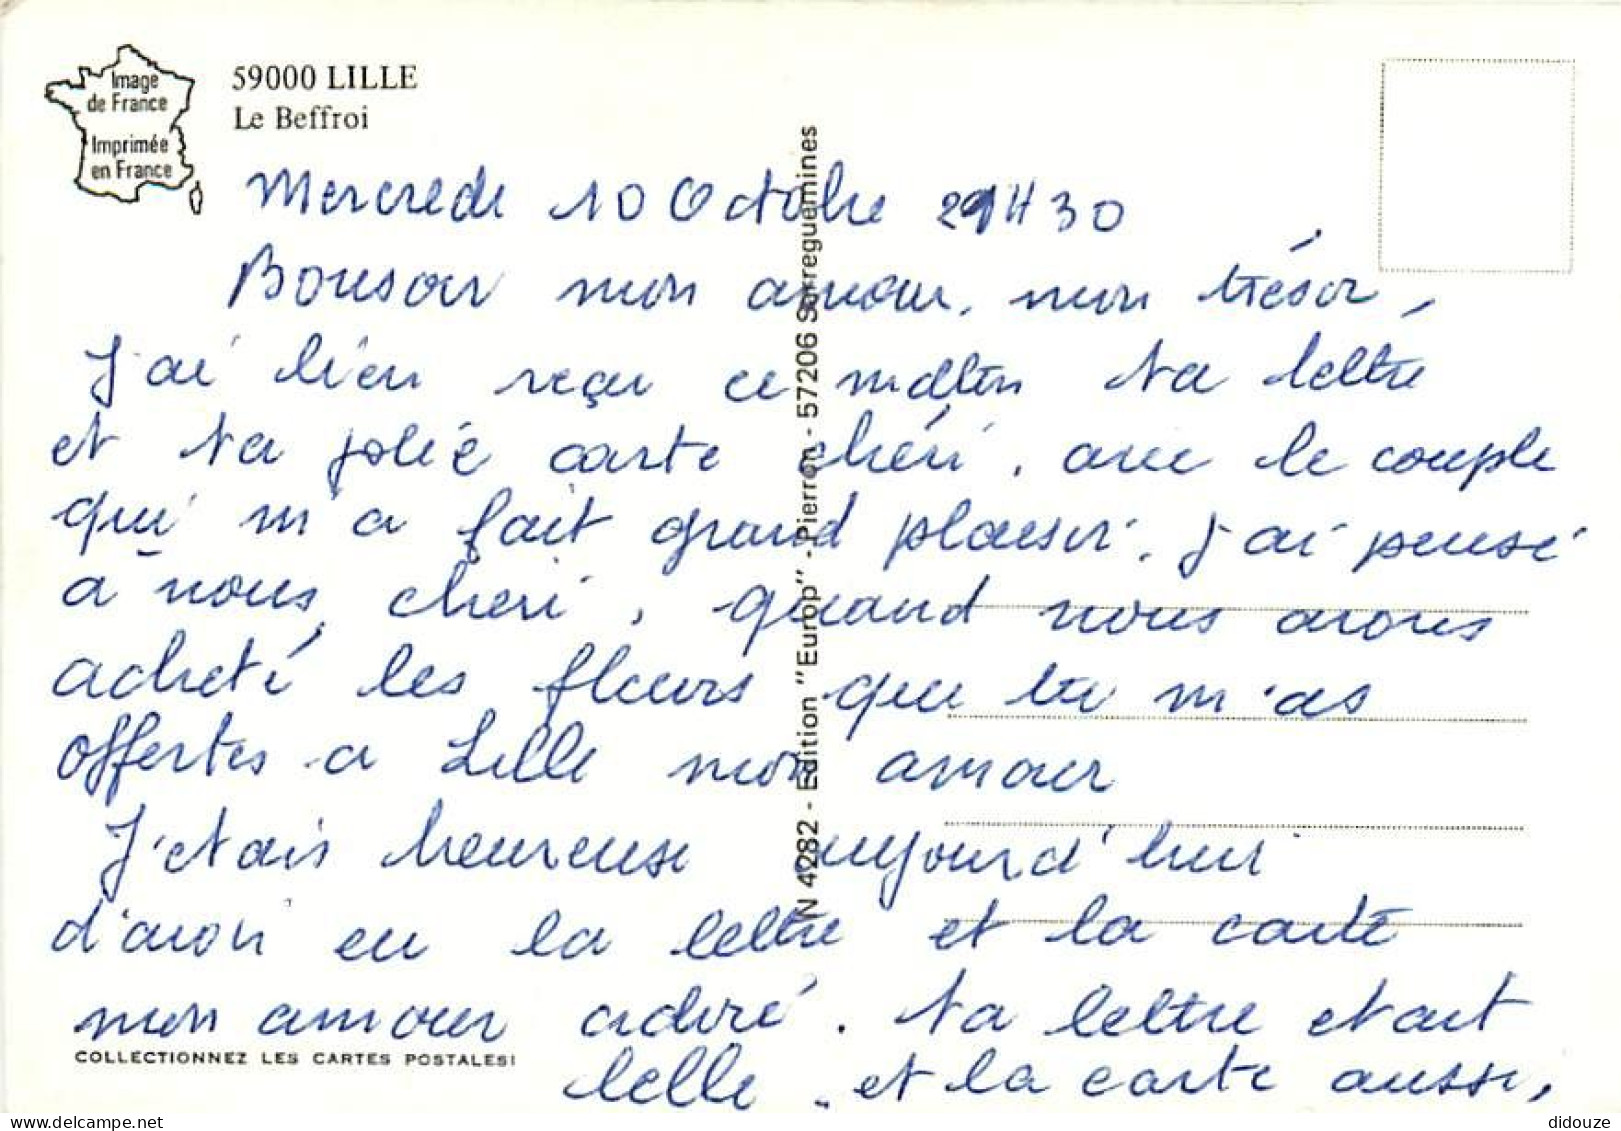 Image
de France
Imprimée
en France
59000 LILLE
Le Beffroi
Mercredi 10 Octobre 21H30
Bonsoir mon amour, mon trésor,
J'ai bien reçu ce matin ta lettre
et ta jolie carte chéri, avec le couple
qui m'a fait grand plaisir. J'ai pensé
a nous, cheri, quand nous avons
acheté les fleurs que tu m'as
offertes a Lille mon amour
J'etais heureuse aujourd'hui
d'avoir eu la lettre et la carte
mon amour adoré. Ta lettre etait
belle. et la carte aussi,
COLLECTIONNEZ LES CARTES POSTALES!
N 4282 - Edition "Europ" - Pierron - 57206 Sarreguemines
didouze